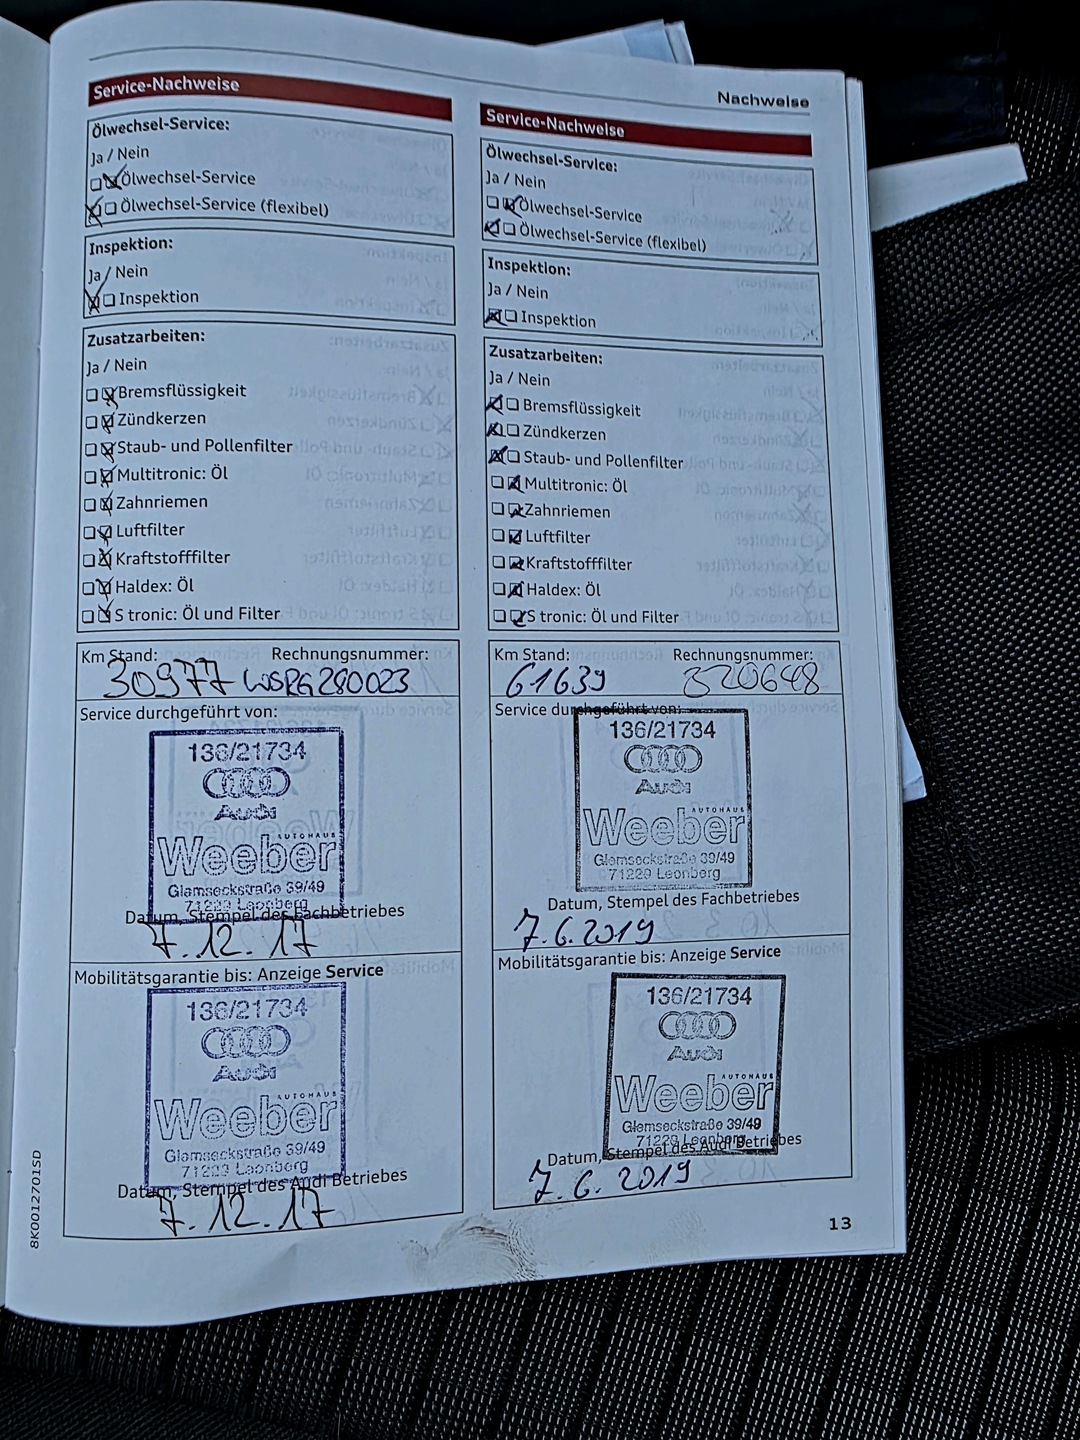 Nachweise
Service-Nachweise
Ölwechsel-Service:
Ja / Nein
Ölwechsel-Service
Ölwechsel-Service (flexibel)
Inspektion:
Ja / Nein
Inspektion
Zusatzarbeiten:
Ja / Nein
Bremsflüssigkeit
Zündkerzen
Staub- und Pollenfilter
Multitronic: Öl
Zahnriemen
Luftfilter
Kraftstofffilter
Haldex: Öl
S tronic: Öl und Filter
Km Stand: Rechnungsnummer:
30977 WSRG280023
Service durchgeführt von:
136/21734
Audi
AUTOHAUS
Weeber
Glemseckstraße 39/49
71229 Leonberg
Datum, Stempel des Fachbetriebes
7.12.17
Mobilitätsgarantie bis: Anzeige Service
136/21734
Audi
AUTOHAUS
Weeber
Glemseckstraße 39/49
71229 Leonberg
Datum, Stempel des Audi Betriebes
7.12.17
8K0012701SD
Service-Nachweise
Ölwechsel-Service:
Ja / Nein
Ölwechsel-Service
Ölwechsel-Service (flexibel)
Inspektion:
Ja / Nein
Inspektion
Zusatzarbeiten:
Ja / Nein
Bremsflüssigkeit
Zündkerzen
Staub- und Pollenfilter
Multitronic: Öl
Zahnriemen
Luftfilter
Kraftstofffilter
Haldex: Öl
S tronic: Öl und Filter
Km Stand: Rechnungsnummer:
61639 320648
Service durchgeführt von:
136/21734
Audi
AUTOHAUS
Weeber
Glemseckstraße 39/49
71229 Leonberg
Datum, Stempel des Fachbetriebes
7.6.2019
Mobilitätsgarantie bis: Anzeige Service
136/21734
Audi
AUTOHAUS
Weeber
Glemseckstraße 39/49
71229 Leonberg
Datum, Stempel des Audi Betriebes
7.6.2019
13